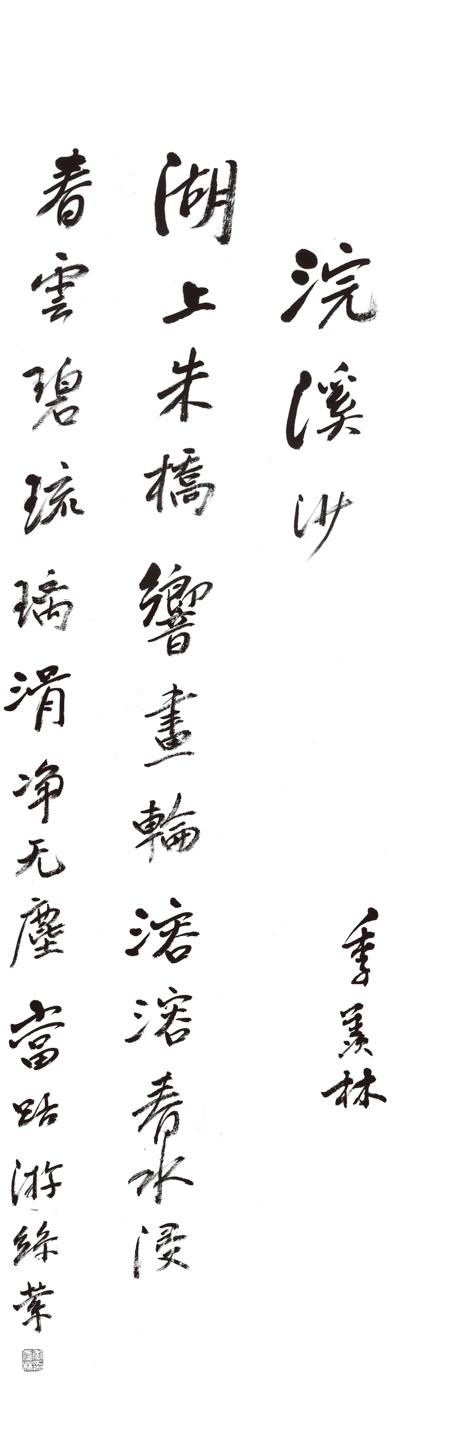 浣溪沙
季羡林
湖上朱橋響畫輪溶溶春水浸
春雲碧琉璃滑净无塵當路游絲縈